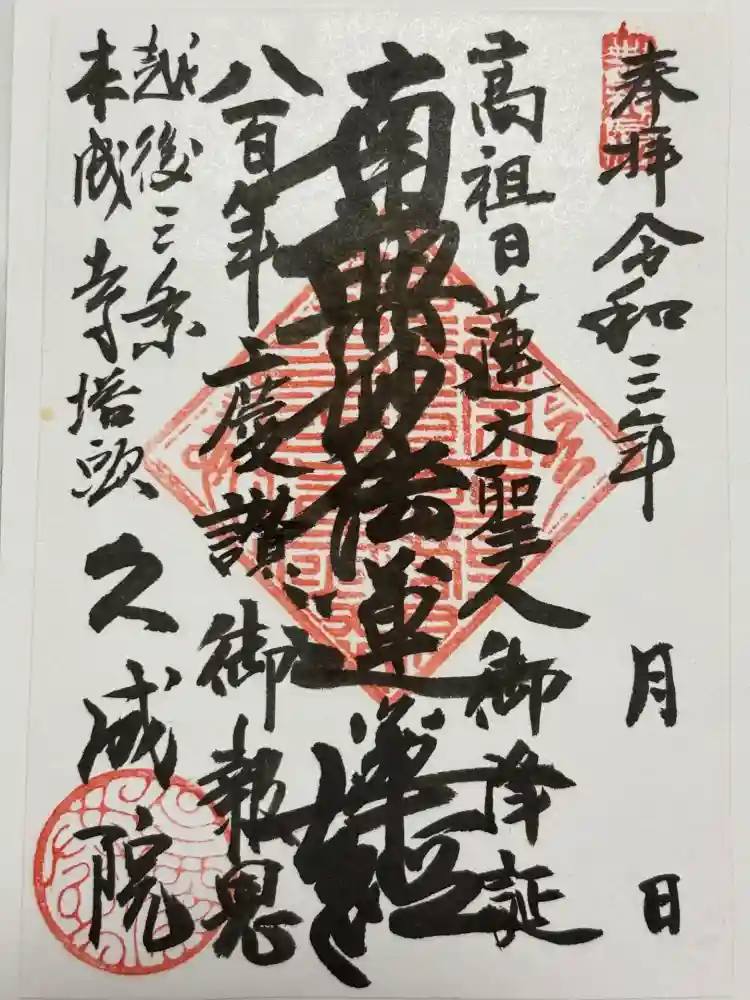 奉拝 令和三年 月 日
高祖日蓮大聖人御降誕
南無妙法蓮華経
八百年慶讃御報恩
越後三条
本成寺塔頭 久成院